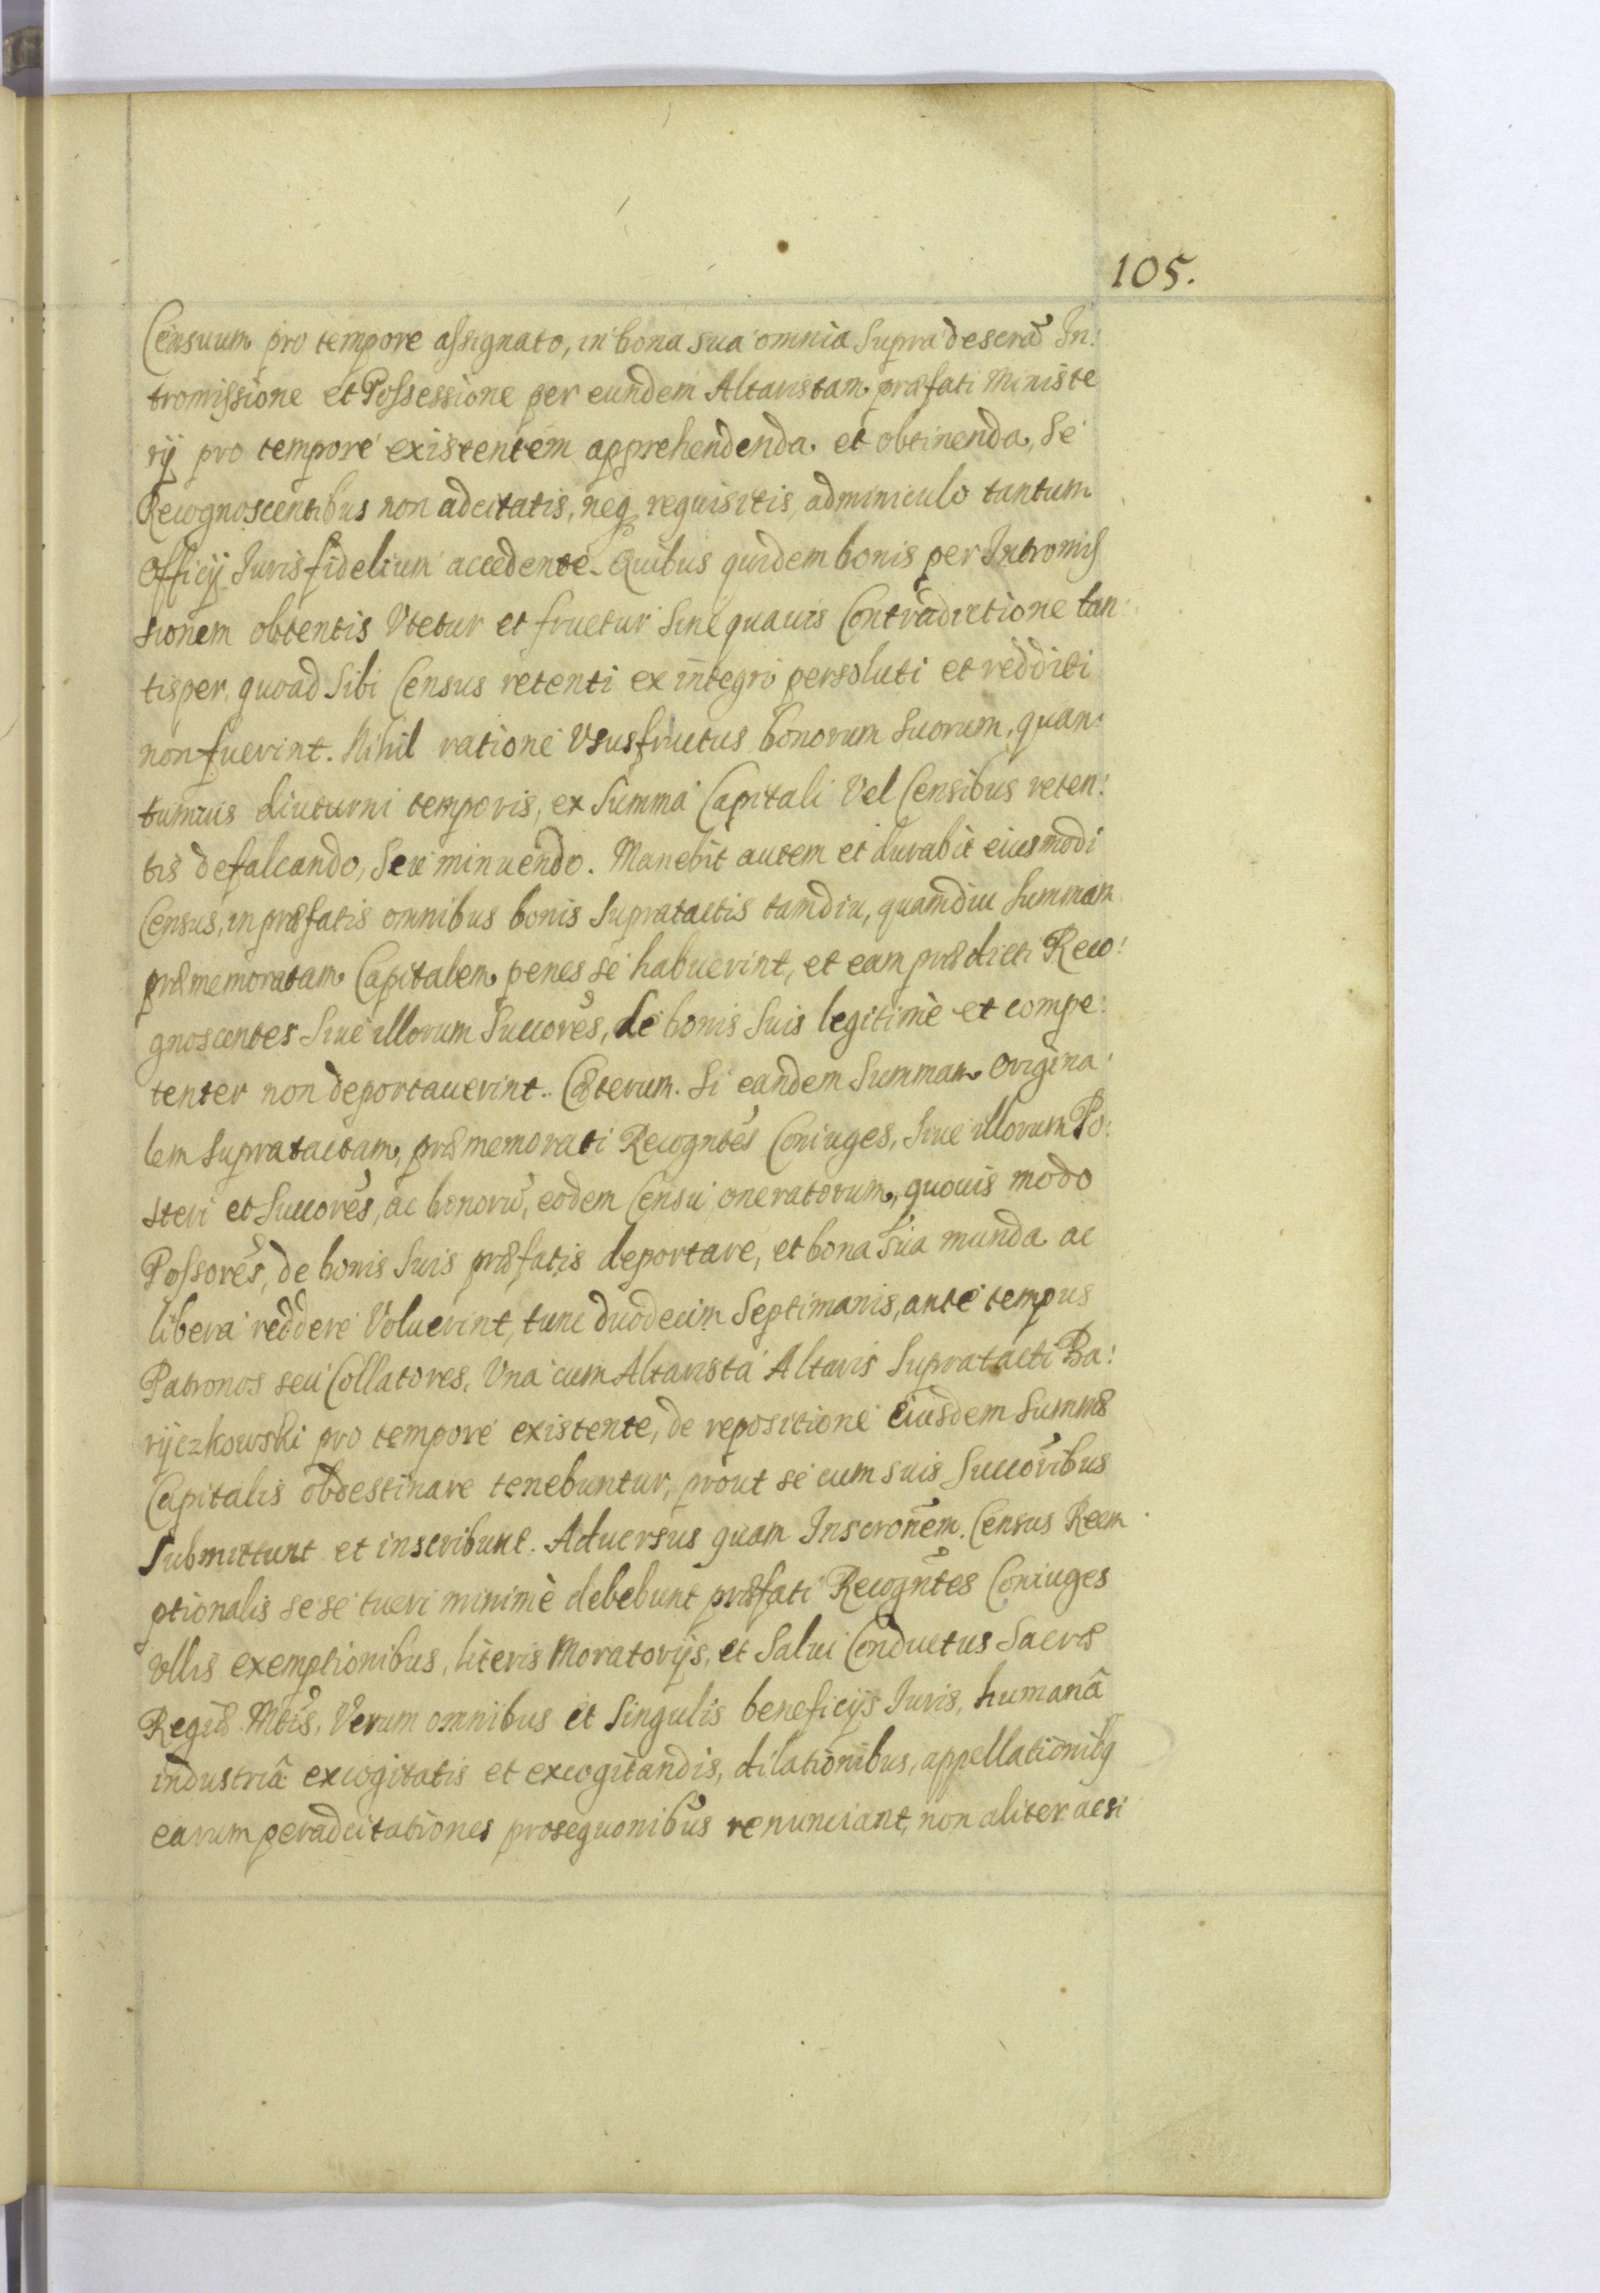 105.
Censuum pro tempore assignato, in bona sua omnia supra descrã In:
tromissione et Possessione per eundem Altaristam præfati Ministe
rij pro tempore existentem apprehendenda et obtinenda, se
Recognoscentibus non adcitatis, neq₃ requisitis, adminiculo tantum
Officij Iurisfidelium accedente. Quibus quidem bonis per Intromis
sionem obtentis Vtetur et fruetur sine quauis Contradictione tan:
tisper, quoad sibi Census retenti ex integro persoluti et redditi
non fuerint. Nihil ratione Vsusfructus bonorum suorum, quan:
tumuis diuturni temporis, ex Summa Capitali Vel Censibus reten:
tis defalcando, seu minuendo. Manebit autem et durabit eiusmodi
Census, in præfatis omnibus bonis supratactis tamdiu, quamdiu summam
præmemoratam Capitalem penes se habuerint, et eam prædicti Reco:
gnoscentes siue illorum Succorẽs, de bonis suis legitimè et compe:
tenter non deportauerint. Cæterum si eandem Summam origina:
lem supratactam, præmemorati Recogntẽs Coniuges, siue illorum Po:
steri et Succorẽs, ac bonorũ, eodem Censu oneratorum, quouis modo
Possorẽs, de bonis suis præfatis deportare, et bona sua munda ac
libera reddere Voluerint, tunc duodecim Septimanis, ante tempus
Patronos seu Collatores, Vna cum Altarista Altaris supratacti Ba:
ryczkowski pro tempore existente, de repositione eiusdem summæ
Capitalis obdestinare tenebuntur, prout se cum suis Succorĩbus
submittunt et inscribunt. Aduersus quam Inscronẽm Census Reem
ptionalis sese tueri minimè debebunt præfati Recogntẽs Coniuges
vllis exemptionibus, literis Moratorijs, et Salui Conductus Sacræ
Regiæ Mtis̃, Verum omnibus et singulis beneficijs Iuris, humanâ
industriâ excogitatis et excogitandis, dilationibus, appellationibq
earum peradcitationes prosequonibũs renunciant, non aliter acsi